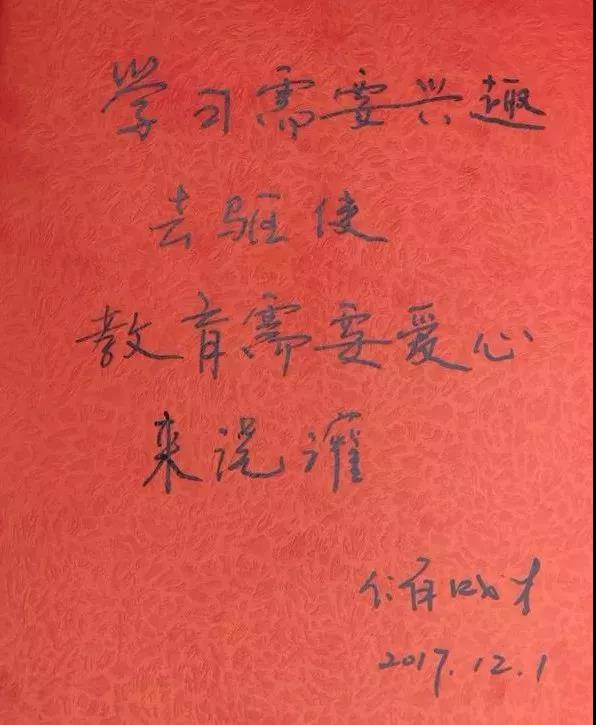 学习需要兴趣
去驱使
教育需要爱心
来浇灌
2017.12.1